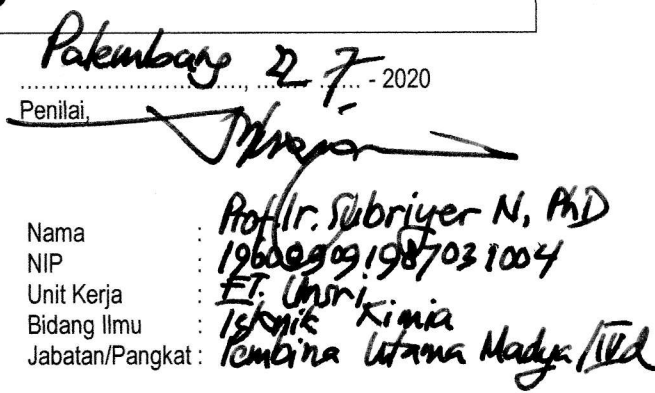 Palembang, 22 7 - 2020
Penilai,
Nama : Prof. Ir. Subriyer N, PhD
NIP : 196009091987031004
Unit Kerja : FT. Unsri
Bidang Ilmu : Teknik Kimia
Jabatan/Pangkat : Pembina Utama Madya/IVd